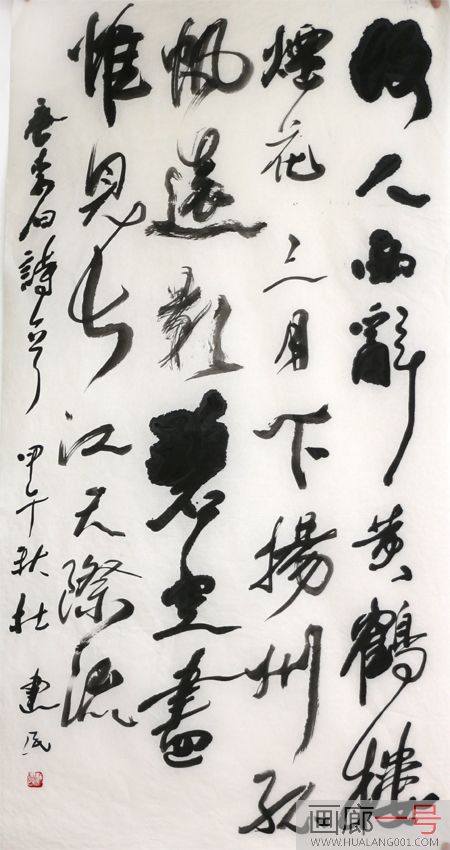 故人西辭黄鶴樓
煙花三月下揚州孤
帆遠影碧空盡
惟見长江天際流
唐李白詩一首 甲午秋杜
画廊一号
WWW.HUALANG001.COM